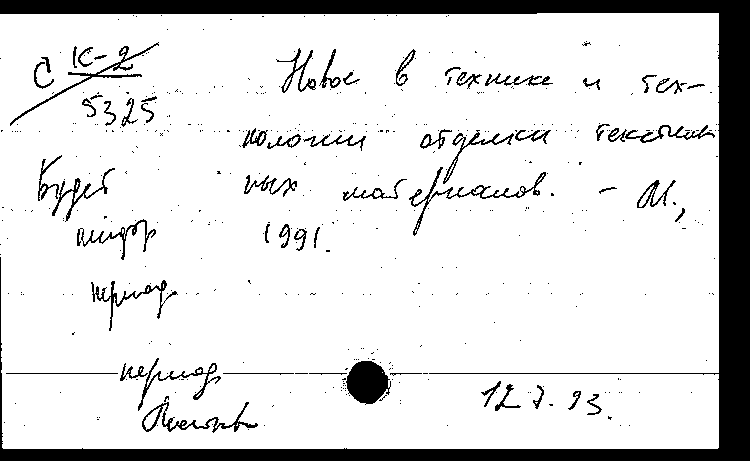 С К-2
5325
Новое в технике и тех-
нологии отделки текстиль
ных материалов. - М.,
1991.
Будет
шифр
период.
период.
12.7.93.